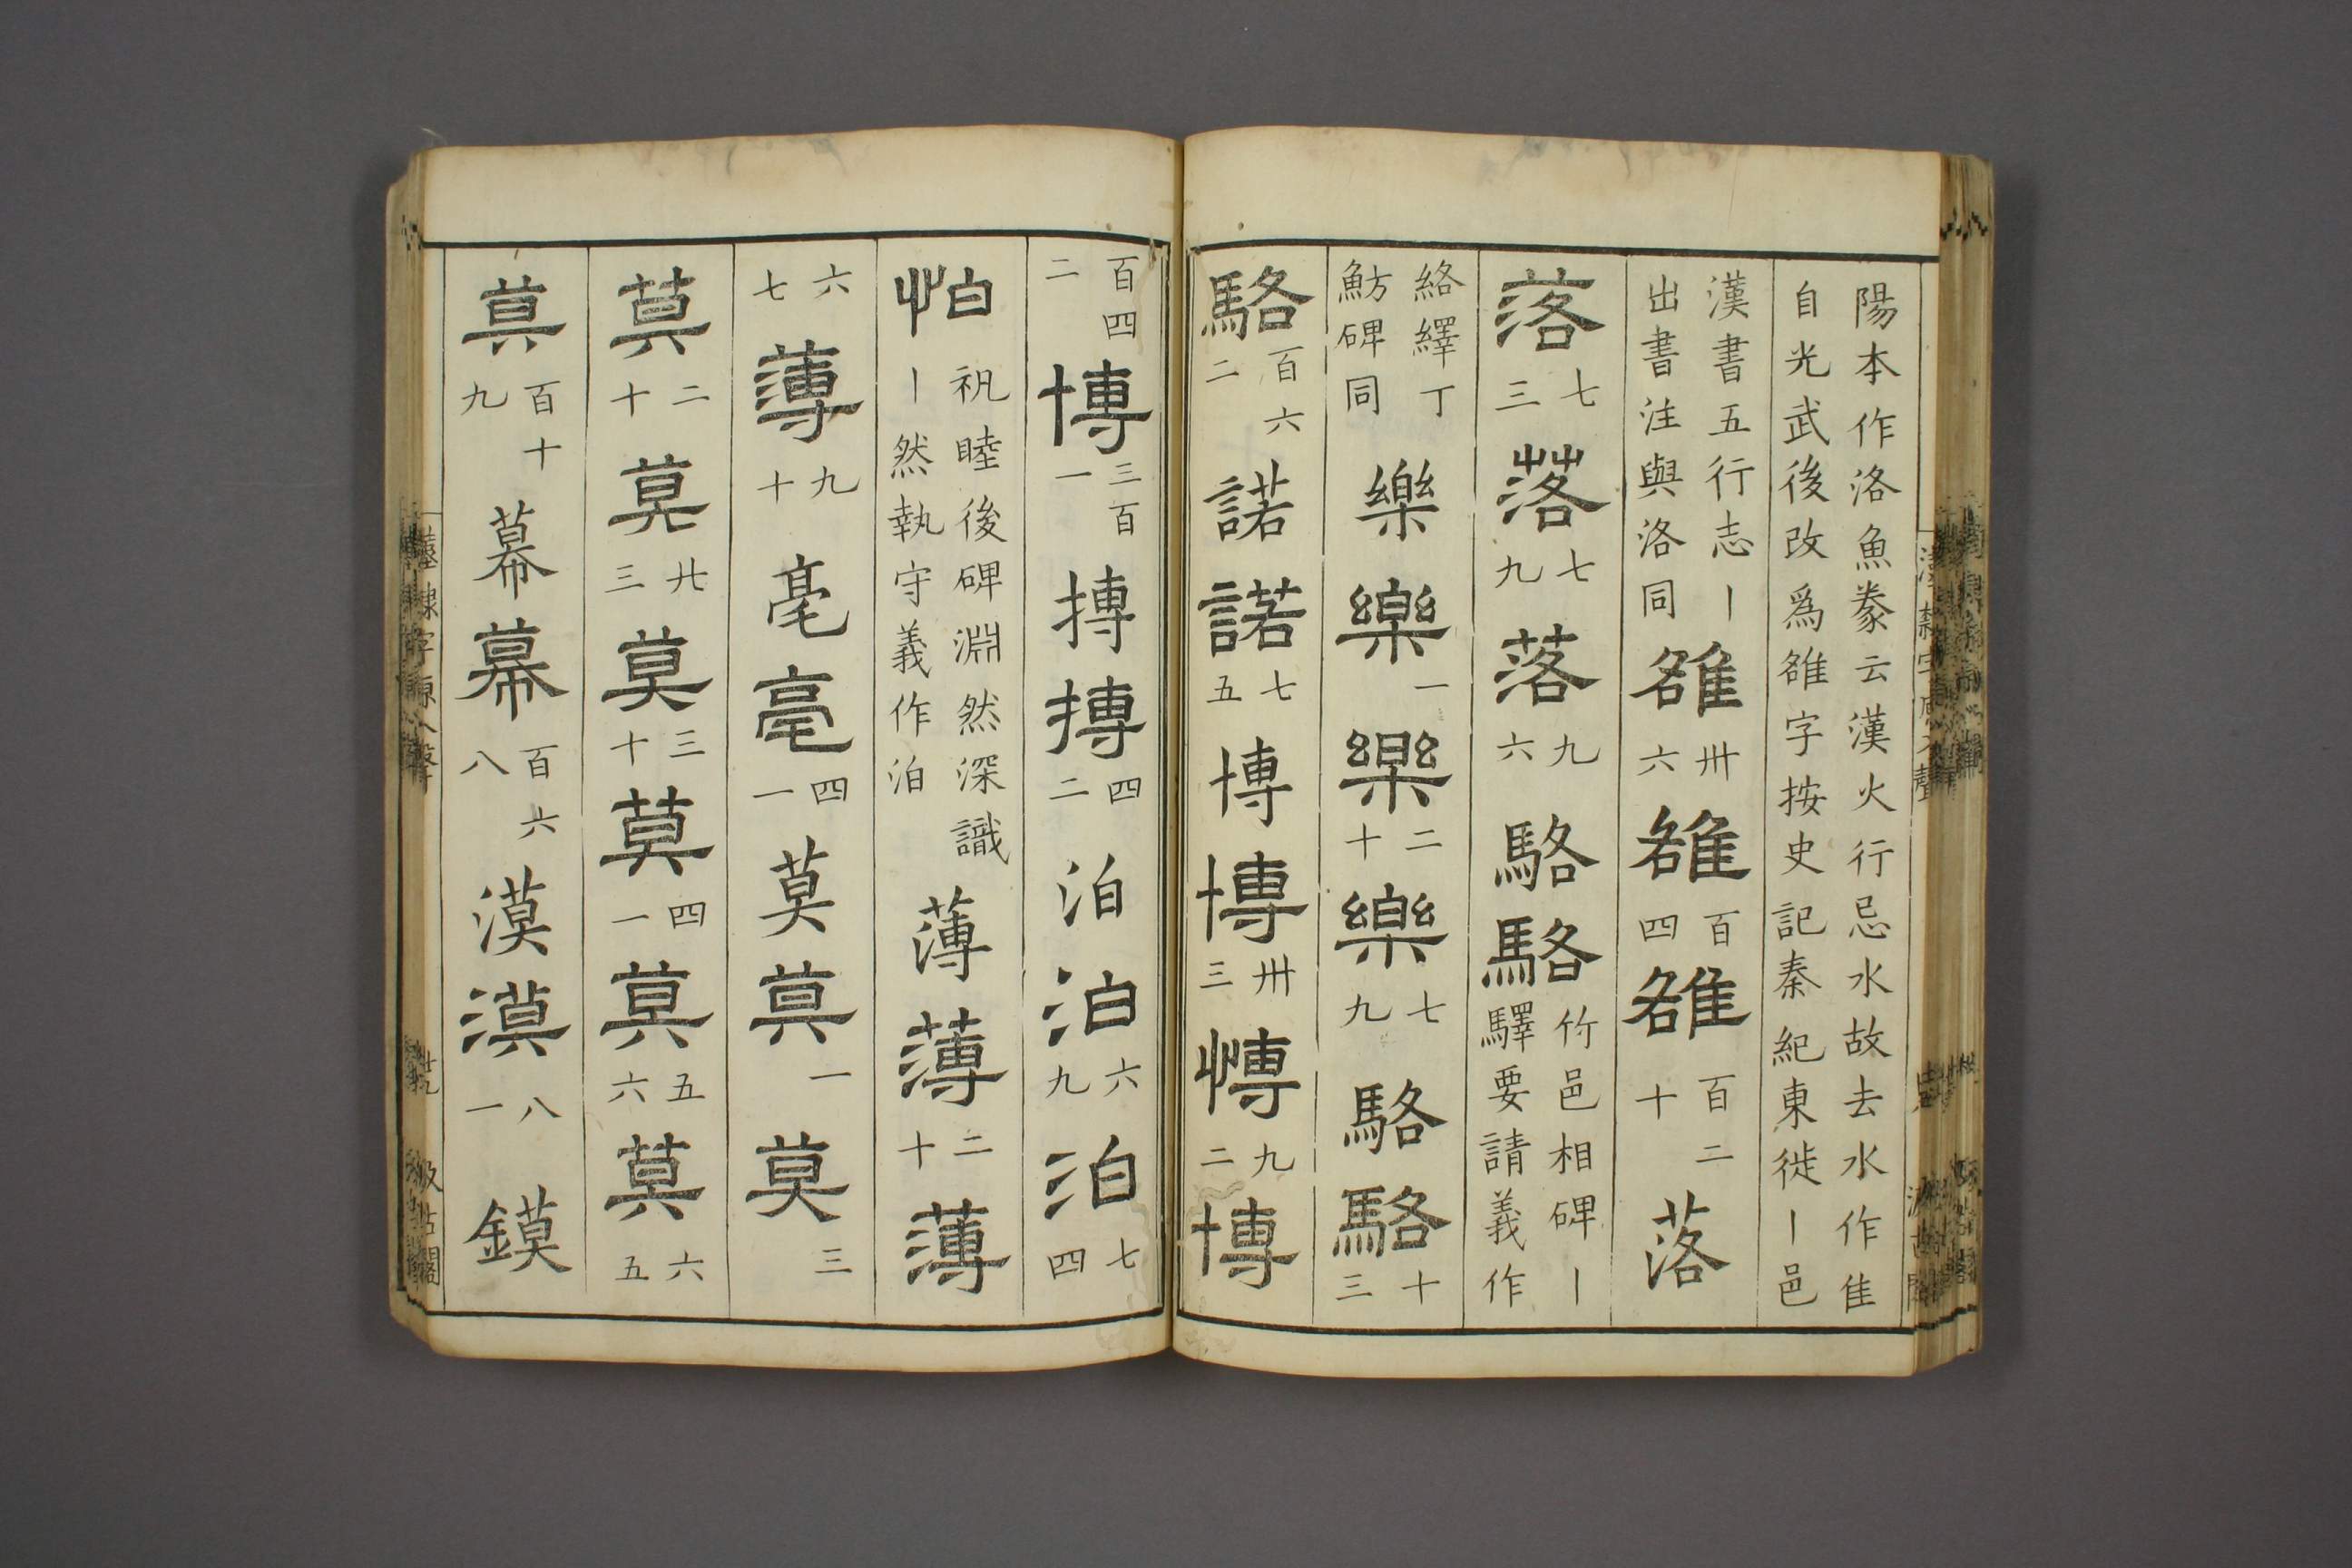 陽本作洛魚豢云漢火行忌水故去水作隹
自光武後改爲雒字按史記秦紀東徙丨邑
漢書五行志丨
出書注與洛同
雒
卅六
雒
百四
雒
百二十
落
落
七三
落
七九
落
九六
駱
駱
竹邑相碑丨丨
驛要請義作
絡繹丁
魴碑同
樂
樂
一
樂
二十
樂
七九
駱
駱
十三
駱
百六二
諾
諾
七五
博
博
卅三
愽
九二
博
百四二
博
三百一
搏
搏
四二
泊
泊
六九
泊
七四
怕
祝睦後碑淵然深識
丨然執守義作泊
薄
薄
二十
薄
六七
薄
九十
亳
亳
四一
莫
莫
一
莫
三
莫
二十
莫
廿三
莫
三十
莫
四一
莫
五六
莫
六五
莫
百十九
幕
幕
百六八
漠
漠
八一
鏌
隸字原入聲
汲古閣